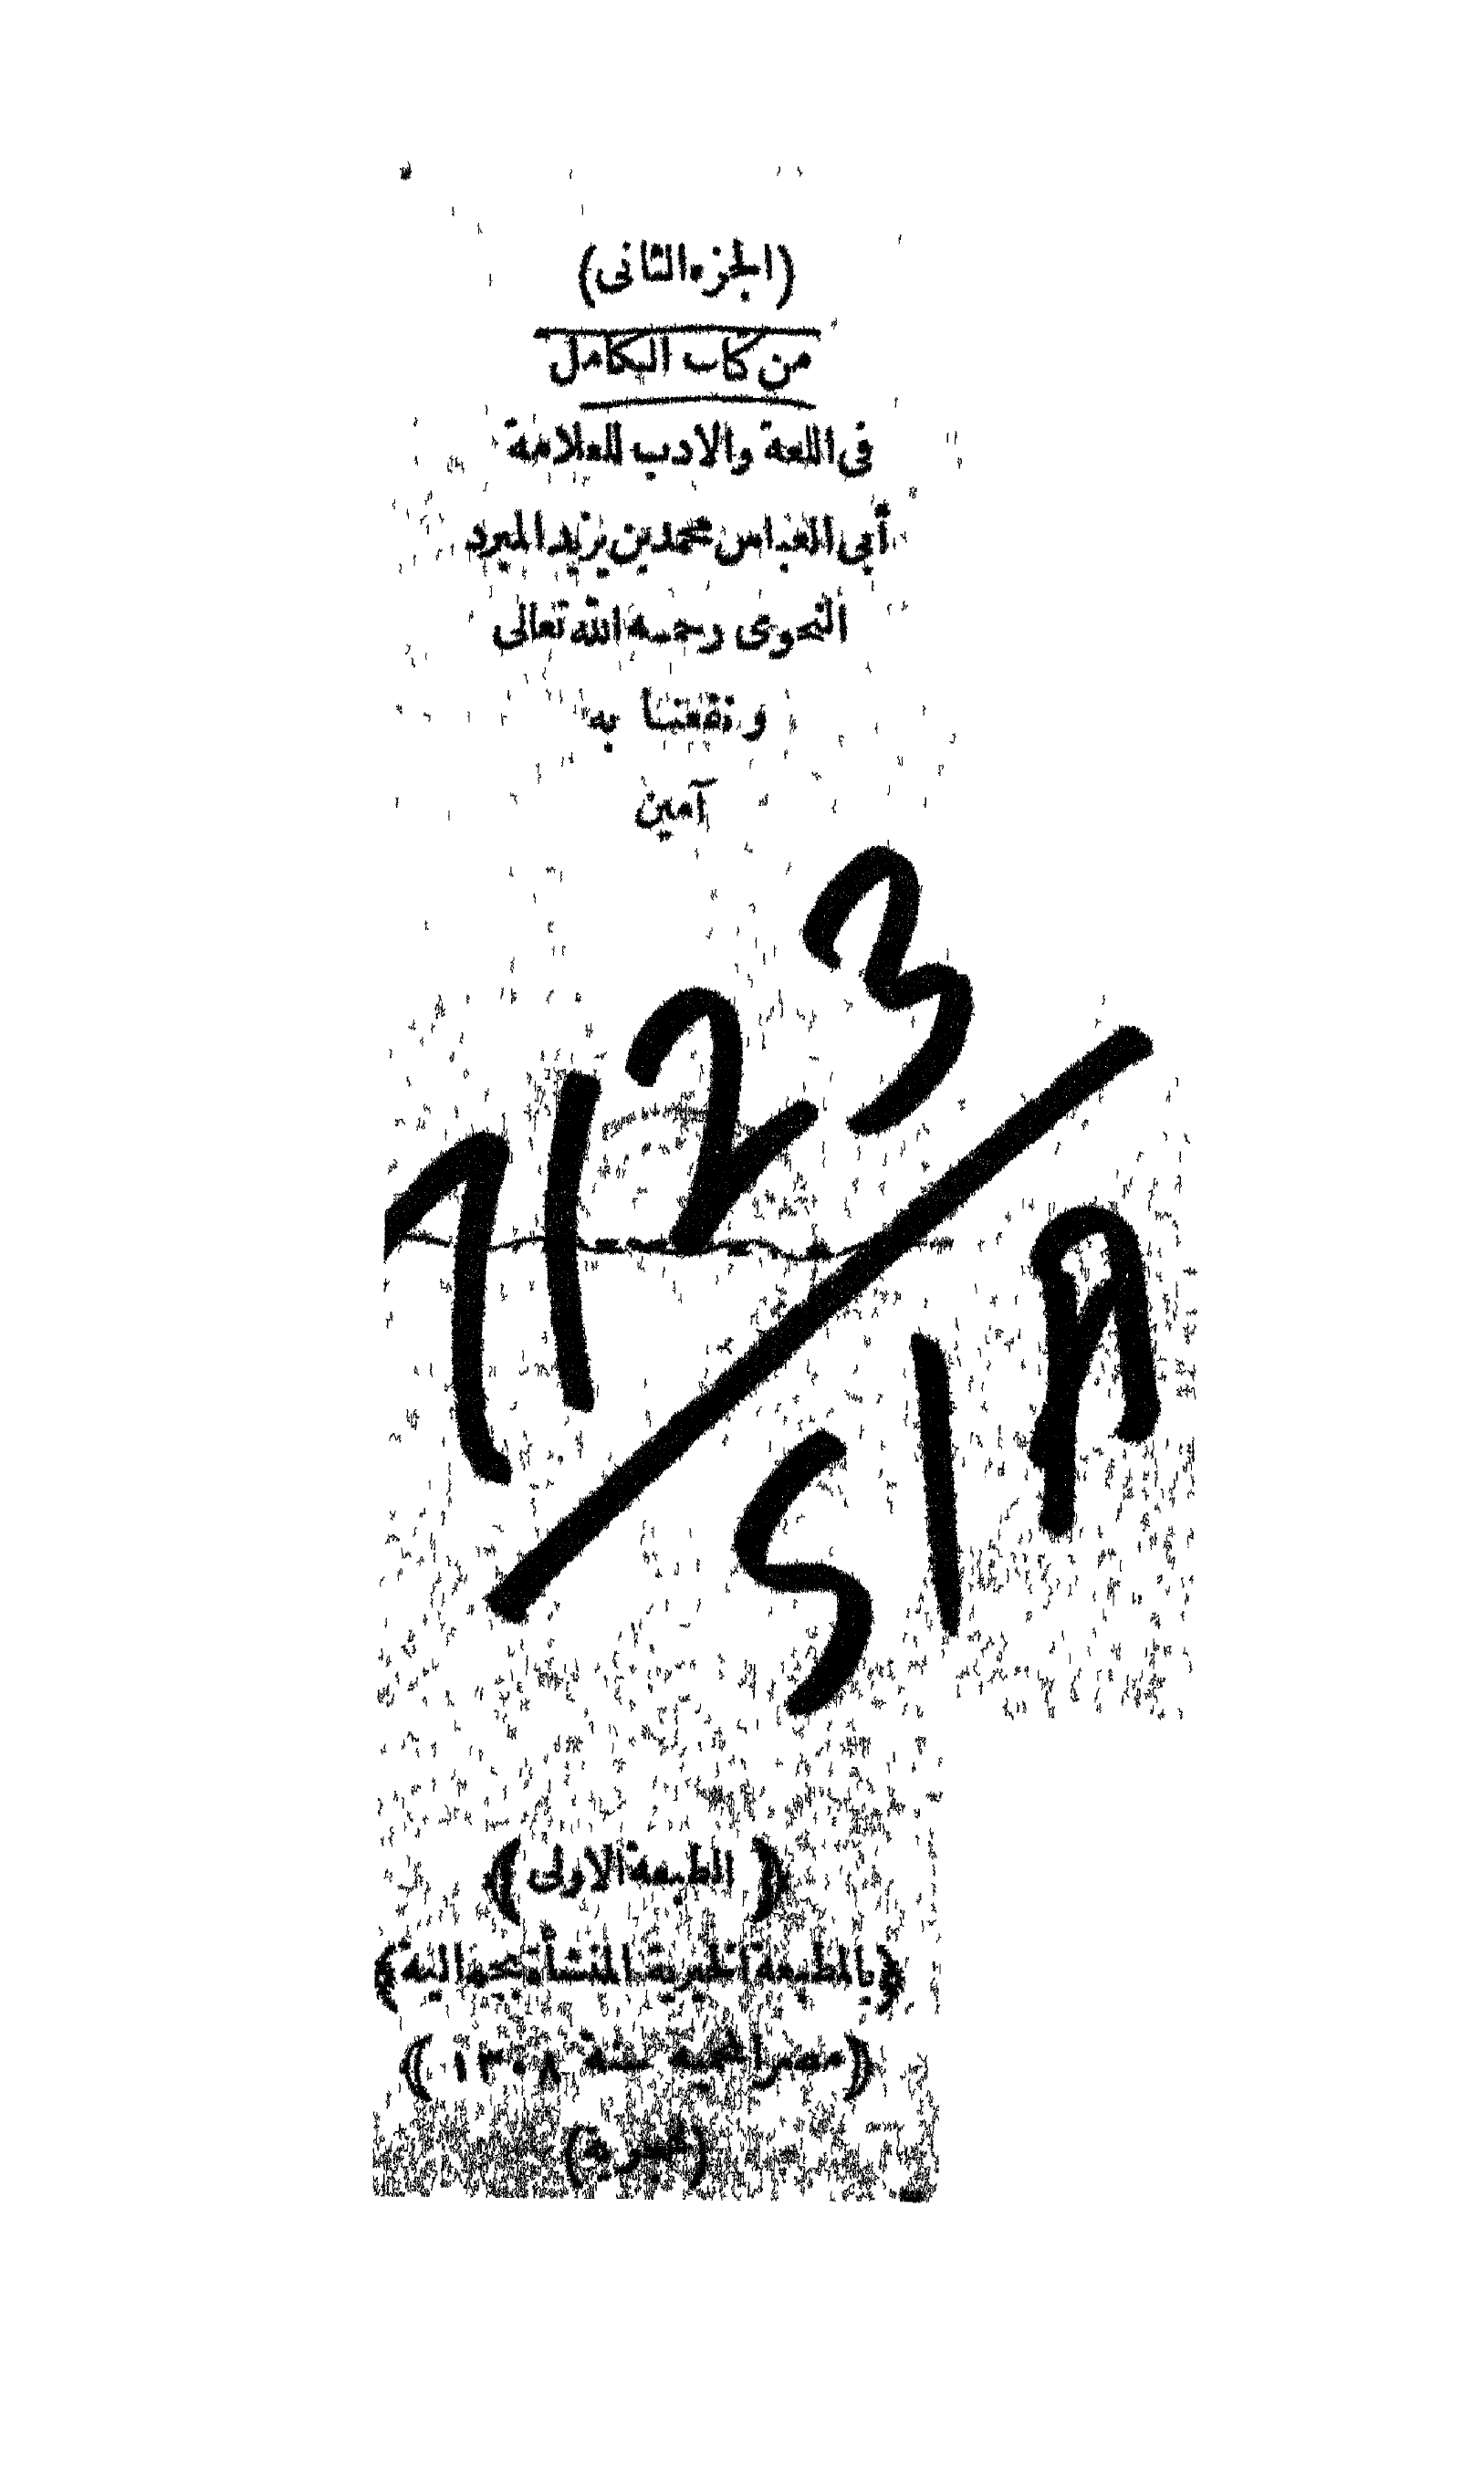 (الجزء الثانى)
من كتاب الكامل
فى اللغة والادب للعلامة
أبى العباس محمد بن يزيد المبرد
النحوى رحمه الله تعالى
ونفعنا به
آمين
7123
518
(الطبعة الاولى)
(بالمطبعة الخيرية المنشأة بجمالية)
(مصر المحمية سنة ١٣٠٨)
(هجرية)